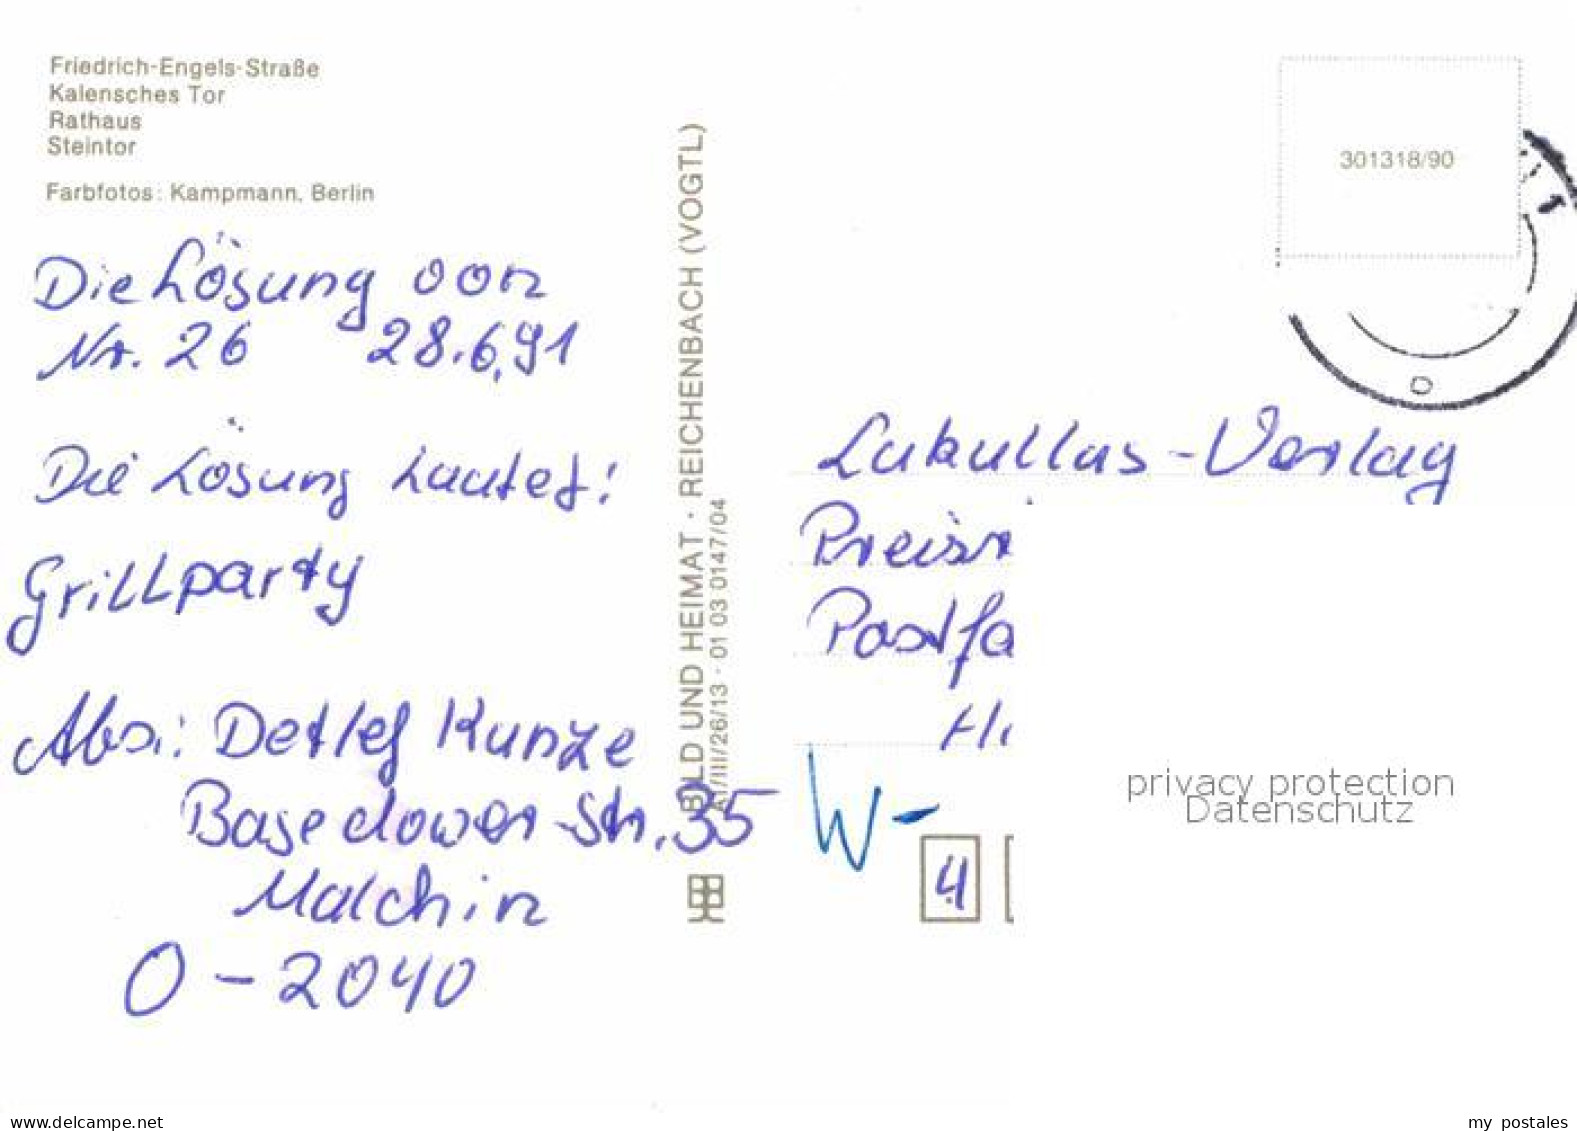 Friedrich-Engels-Straße
Kalensches Tor
Rathaus
Steintor
Farbfotos: Kampmann, Berlin
Die Lösung von
Nr. 26 28.6.91
Die Lösung Lautet!
Grillparty
Abs.: Detlef Kunze
Basedower-Str. 35
Malchin
O-2040
BILD UND HEIMAT · REICHENBACH (VOGTL)
A1/III/26/13 · 01 03 0147/04
301318/90
Lukullus-Verlag
Preisr
Postfa
W-
4
privacy protection
Datenschutz
www.delcampe.net
my postales